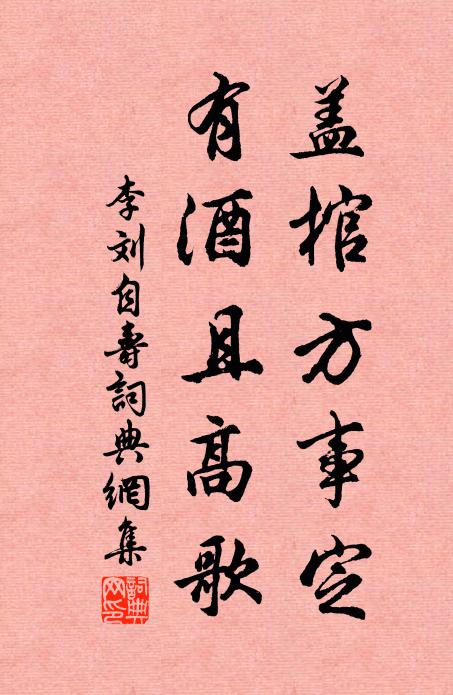 盖棺方事定
有酒且高歌
李刘自壽詞典網集
詞典
网印